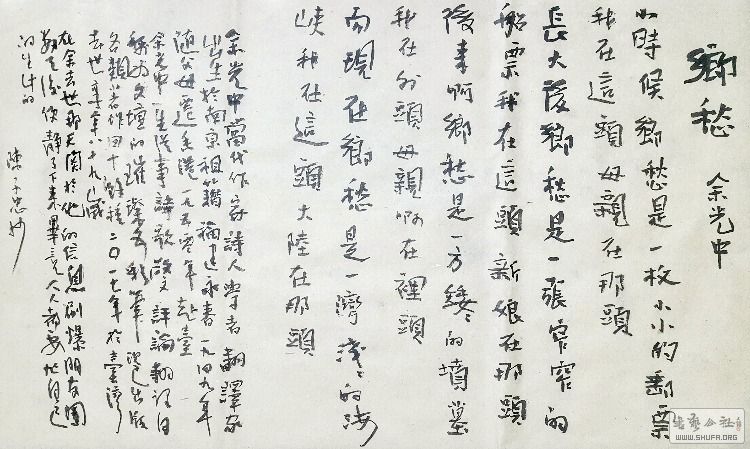 鄉愁 余光中
小時候鄉愁是一枚小小的郵票
我在這頭母親在那頭
長大後鄉愁是一張窄窄的
船票我在這頭新娘在那頭
後來啊鄉愁是一方矮矮的墳墓
我在外頭母親啊在裡頭
而現在鄉愁是一灣淺淺的海
峽我在這頭大陸在那頭
余光中當代作家詩人學者翻譯家
出生於南京祖籍福建永春一九四九年
隨父母遷香港一九五零年赴臺
余光中一生從事詩歌散文評論翻譯自
稱為文壇的璀璨五彩筆
各類著作四十餘種二〇一七年於臺灣
去世享年八十九歲
在余去世那天關於他的信息刷爆朋友圈
數天後便靜了下來畢竟人人都要忙自己
的生計的
陳 忠 抄
书艺公社
WWW.SHUFA.ORG